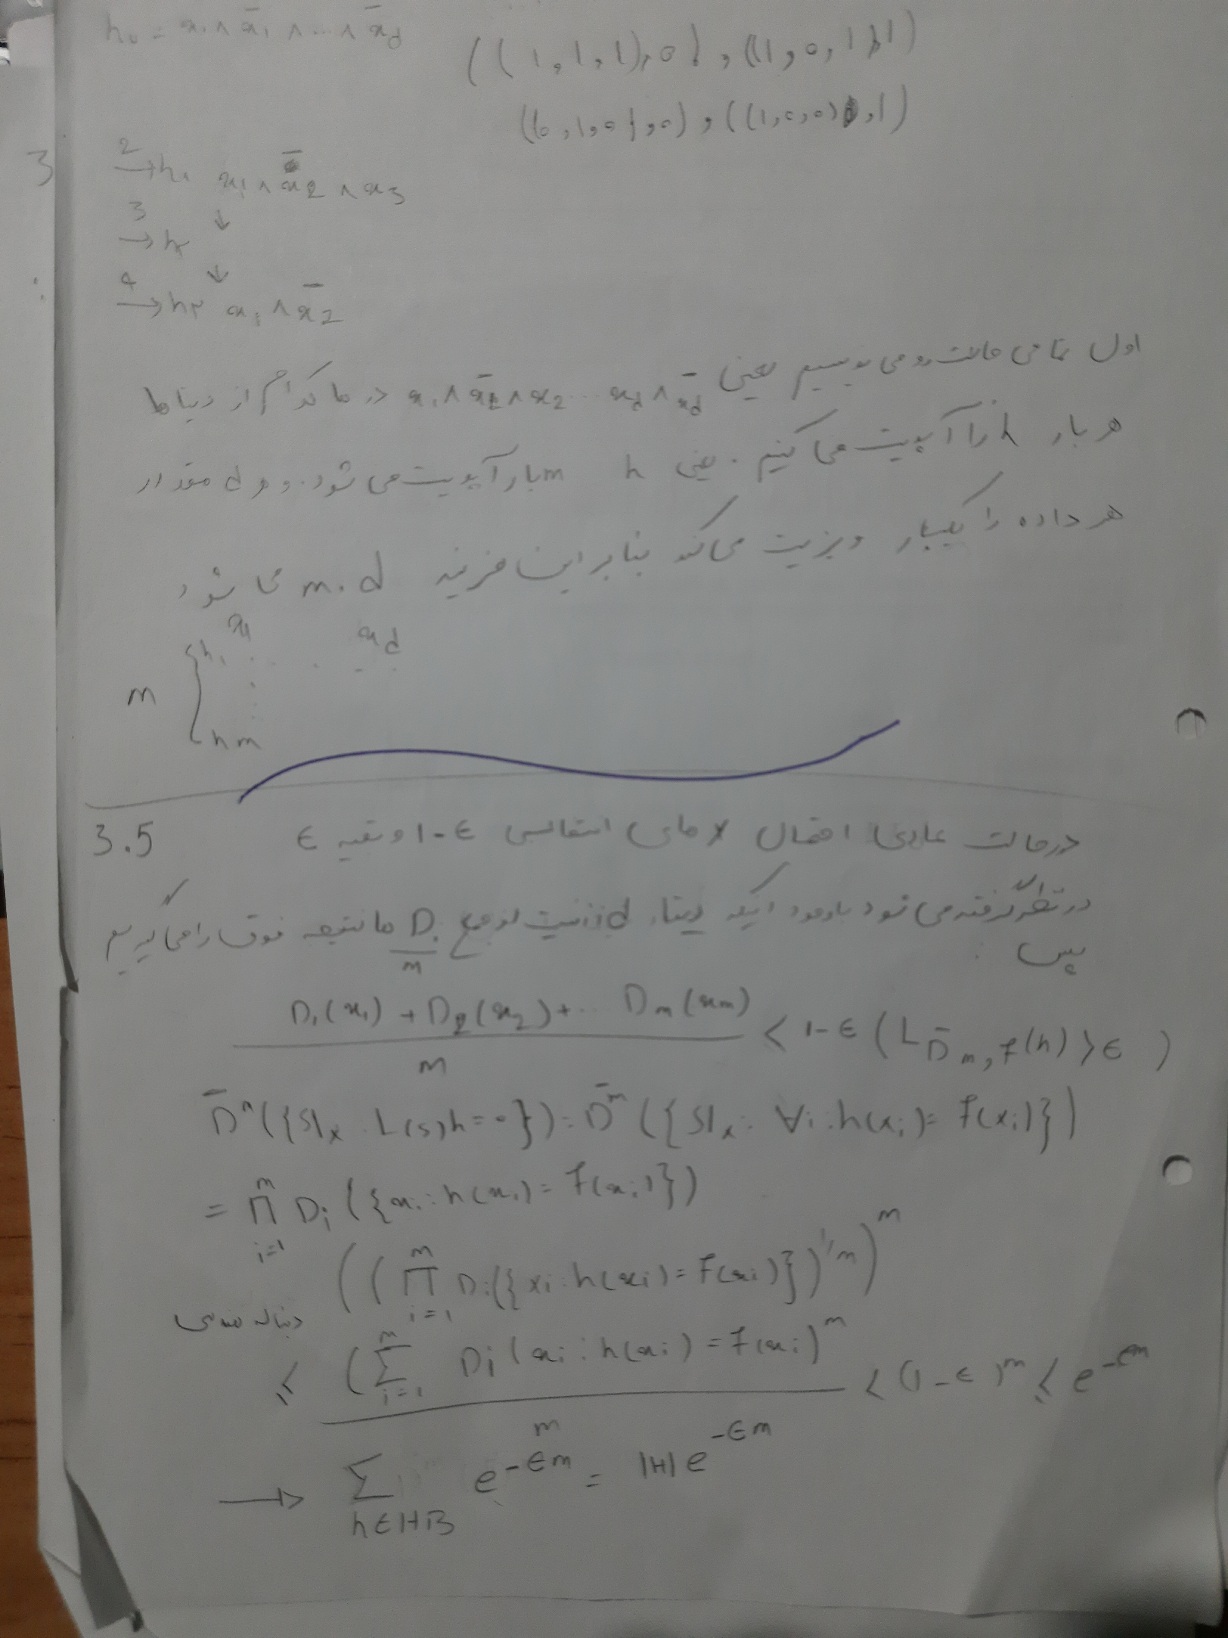 h₀ = x₁ ∧ x̄₁ ∧ ... ∧ x̄d
((1,1,1),0), ((1,0,1),1)
((0,1,0),0), ((1,0,0),1)
3
2→ h₁ x₁ ∧ x̄2 ∧ x3
↓
3→ h۲
↓
4→ h۳ x₁ ∧ x̄2
اول تمامی حالت رو می نویسیم یعنی x₁ ∧ x̄1 ∧ x2 ... xd ∧ x̄d در هر کدام از دیتاها
هر بار h را آپدیت می کنیم. یعنی h m بار آپدیت می شود. و d مقدار
هر داده را یکبار ویزیت می کند بنابراین هزینه m.d می شود
x1 ... xd
m { h₁ ... hm
3.5 در حالت عادی احتمال xهای انتخابی 1-ϵ و بقیه ϵ
در نظر گرفته می شود با وجود اینکه دیتا، از جمع D̲i̲ ما نتیجه فوق را می گیریم
m
پس :
D₁(x₁) + D2(x2) + ... Dm(xm) / m < 1-ϵ (L D̄m,f(h) > ϵ)
D̄ᵐ({S|x : L(s)h=0}) = D̄ᵐ({S|x : ∀i : h(xi) = f(xi)})
= ∏ᵐi=1 Di({xi : h(xi) = f(xi)})
((∏ᵐi=1 Di({xi : h(xi) = f(xi)}))^1/m)^m
≤ (∑ᵐi=1 Di(xi : h(xi) = f(xi))^m / m < (1-ϵ)^m ≤ e^-ϵm
→ ∑h∈HB e^-ϵm = |H| e^-ϵm